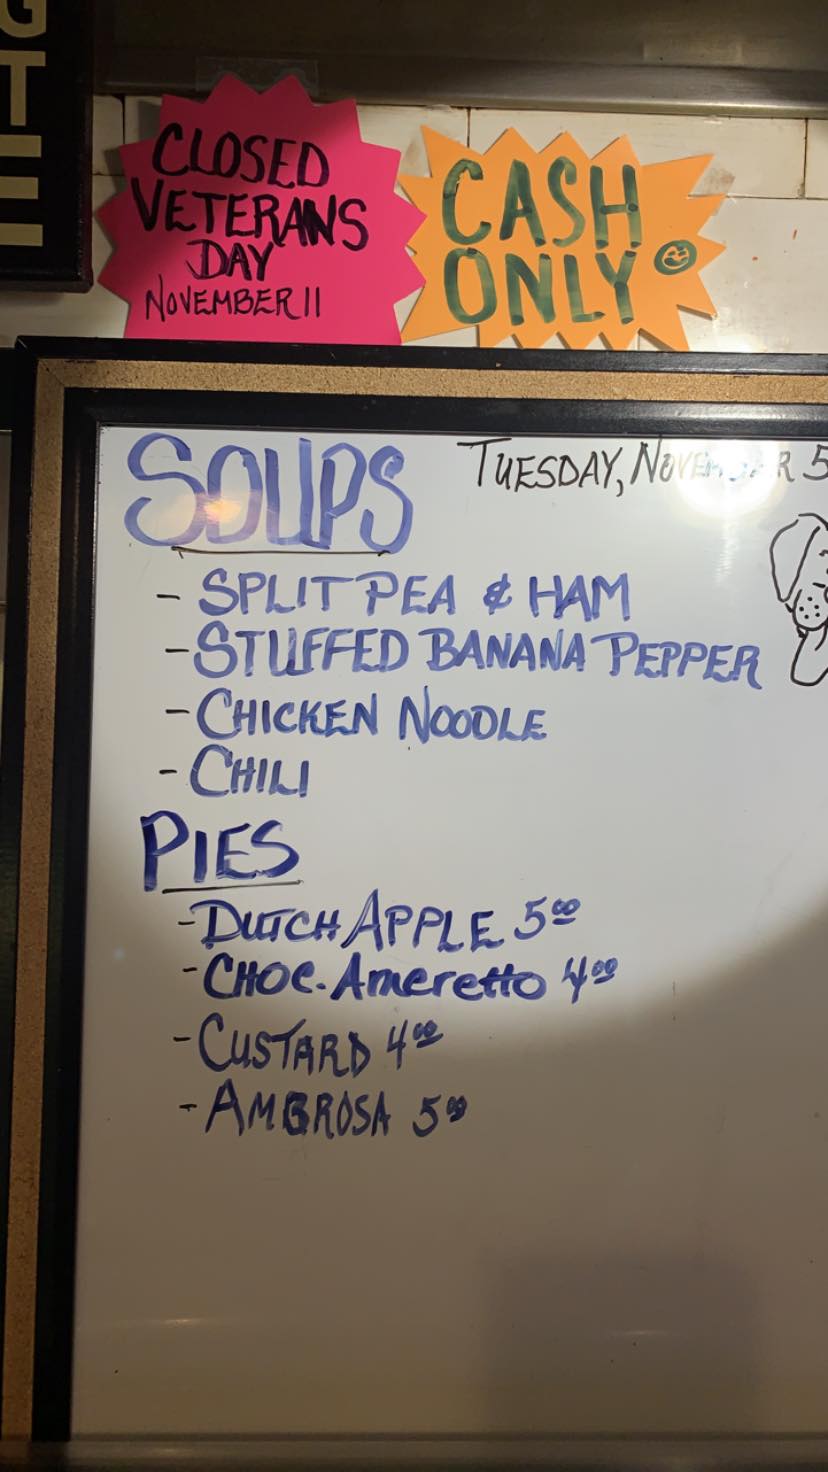 G
T
E
CLOSED
VETERANS
DAY
NOVEMBER 11
CASH
ONLY
SOUPS
TUESDAY, NOVEMBER 5
- SPLIT PEA & HAM
- STUFFED BANANA PEPPER
- CHICKEN NOODLE
- CHILI
PIES
- DUTCH APPLE 5.00
- CHOC. Ameretto 4.00
- CUSTARD 4.00
- AMBROSA 5.00